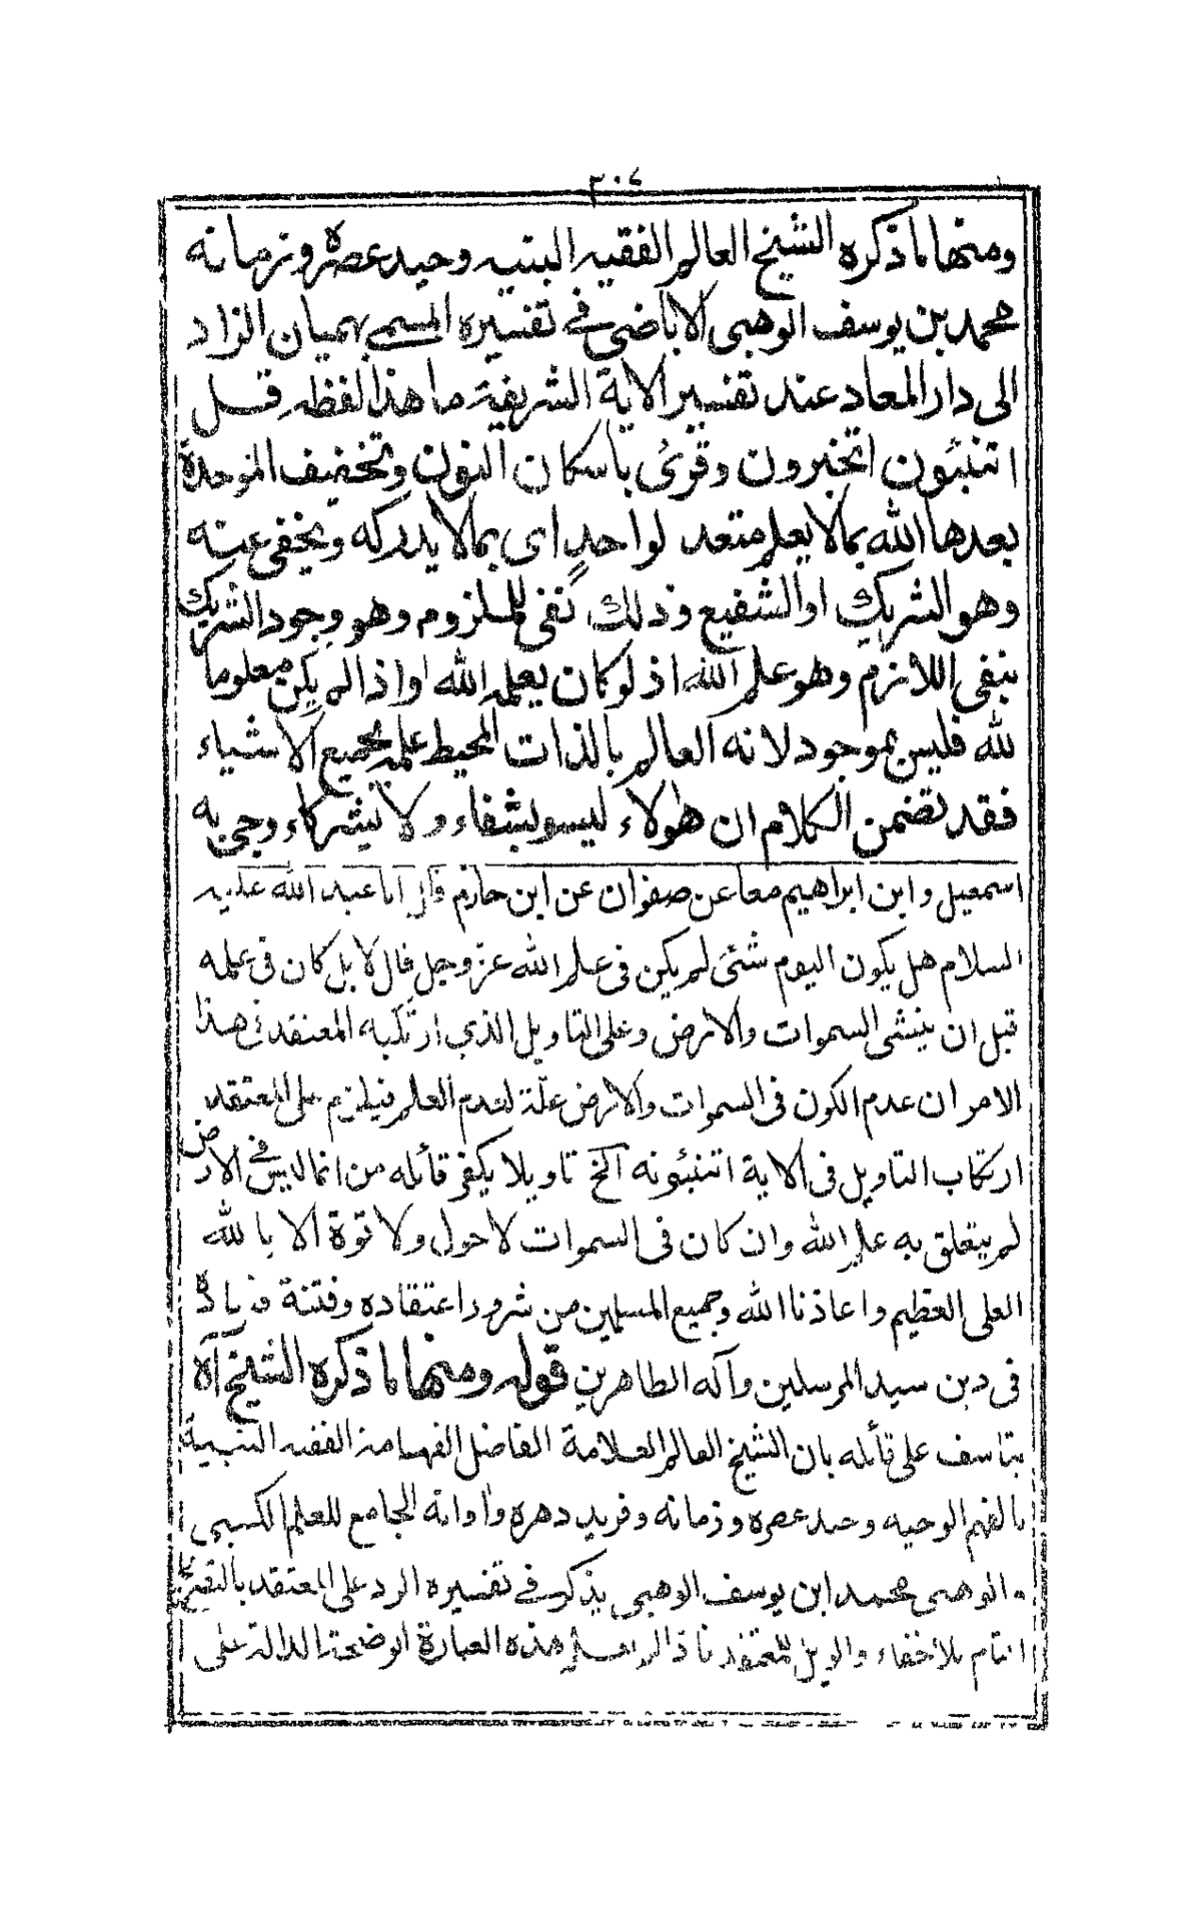 ٣٠٤
ومنها ما ذكره الشيخ العالم الفقيه النبيه وحيد عصره وزمانه
محمد بن يوسف الوهبى الاباضى فى تفسيره المسمى بهميان الزاد
الى دار المعاد عند تفسير الاية الشريفة ما هذا لفظه قل
اتنبئون اتخبرون وقرئ باسكان النون وتخفيف الموحدة
بعدها الله بما لا يعلم متعد لواحد اى بما لا يدركه ويخفى عنه
وهو الشريك او الشفيع وذلك نفى للملزوم وهو وجود الشريك
بنفى اللازم وهو علم الله اذ لو كان يعلمه الله واذا لم يكن معلوما
لله فليس بموجود لانه العالم بالذات المحيط علمه بجميع الاشياء
فقد تضمن الكلام ان هؤلاء ليسو بشفاء ولا بشركاء وجئ به
اسمعيل وابن ابراهيم معا عن صفوان عن ابن حازم قال ابا عبد الله عليه
السلام هل يكون اليوم شئ لم يكن فى علم الله عز وجل قال لا بل كان فى علمه
قبل ان ينشى السموات والارض وعلى التاويل الذي ارتكبه المعتقد فى هذا
الامر ان عدم الكون فى السموات والارض علة لعدم العلم فيلزم على المعتقد
ارتكاب التاويل فى الاية اتنبئونه الخ تاويلا يكفر قائله من انما ليس فى الارض
لم يتعلق به علم الله وان كان فى السموات لاحول ولا قوة الا بالله
العلى العظيم واعاذنا الله وجميع المسلمين من شرور اعتقاده وفتنة فساده
فى دين سيد المرسلين وآله الطاهرين قوله ومنها ما ذكره الشيخ آه
يتاسف على قائله بان الشيخ العالم العلامة الفاضل الفهامة الفقيه النبيه
بالفهم الوحيه وحيد عصره وزمانه وفريد دهره واوانه الجامع للعلم الكسبى
والوهبى محمد ابن يوسف الوهبى يذكر فى تفسيره الرد على المعتقد
التام بلا خفاء والويل للمعتقد هذه العبارة الوضحة الدالة على